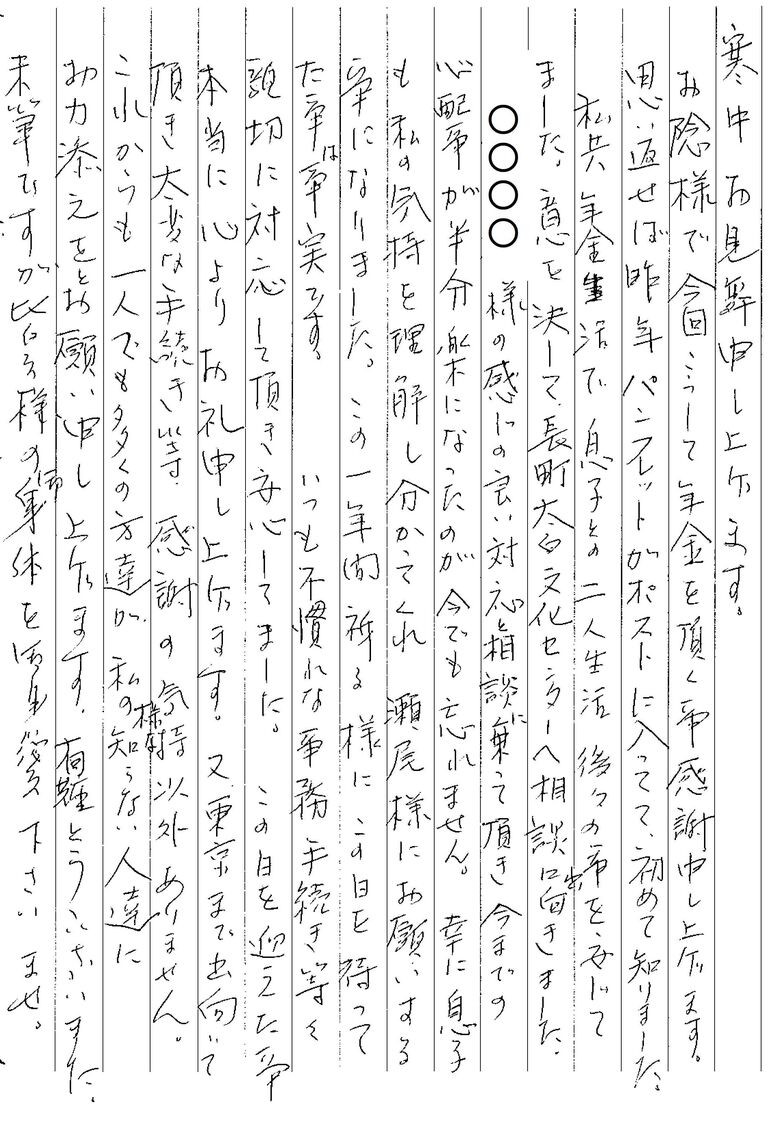 寒中お見舞申し上げます。
お陰様で今回こうして年金を頂く事感謝申し上げます。
思い返せば昨年パンフレットがポストに入ってて、初めて知りました。
私共年金生活で息子との二人生活後々の事を案じて
ました。意を決して、長町太白文化センターへ相談に出向きました。
〇〇〇〇様の感じの良い対応と相談に乗って頂き今までの
心配事が半分楽になったのが今でも忘れません。幸に息子
も私の気持を理解し分かってくれ瀬尾様にお願いする
事になりました。この一年間祈る様にこの日を待って
た事は事実です。いつも不慣れな事務手続き等々
親切に対応して頂き安心してました。この日を迎えた事
本当に心よりお礼申し上げます。又東京まで出向いて
頂き大変な手続き等感謝の気持以外ありません。
これからも一人でも多くの方達が、私の様な知らない人達に
お力添えをとお願い申し上げます。有難とうございました。
末筆ですが皆々様の御身体を御自愛下さいませ。